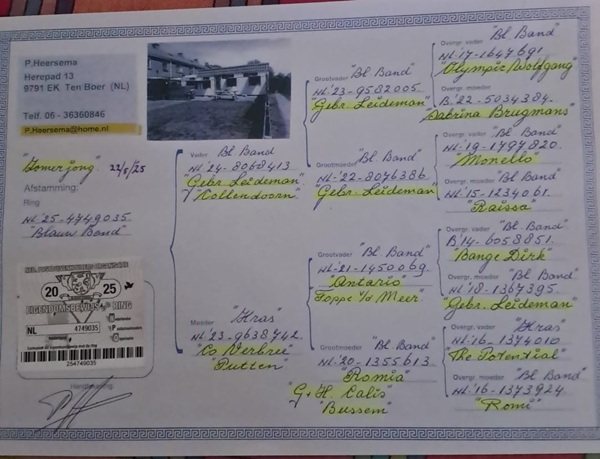 P.Heersema
Herepad 13
9791 EK Ten Boer (NL)
Telf. 06 - 36360846
P.Heersema@home.nl
"Zomerjong" 22/5/25
Afstamming:
Ring
NL-25-4749035
"Blauw Band"
20 25
EIGENDOMSBEWIJS RING
NL 4749035
254749035
Handtekening:
Vader "Bl Band"
NL "24-8068413
"Gebr. Leideman"
"/Kollendoorn"
Moeder "Kras"
NL "23-9638742
"Co Verbree"
"Putten"
Grootvader "Bl Band"
NL "23-9582005
Gebr. Leideman"
Grootmoeder "Bl Band"
NL "22-8076386
"Gebr. Leideman"
Grootvader "Bl Band"
NL-21-1450069
"Antario"
Foppe v/d Meer"
Grootmoeder "Bl Band"
NL-20-1355613
"Romia"
G+H. Calis
"Bussem"
Overgr. vader "Bl Band"
NL-17-1647691
"Olympic/Wolfgang"
Overgr. moeder "Bl Band"
B."22-5034384
Sabrina Brugmans"
Overgr. vader "Bl Band"
NL-19-1797820
"Monello"
Overgr. moeder "Bl Band"
NL-15-1234061
"Raissa"
Overgr. vader "Bl. Band"
B"14-6058851
"Bange Dirk"
Overgr. moeder "Bl Band"
NL"18-1367395
"Gebr. Leideman"
Overgr. vader "Kras"
NL-16-1374010
"The Potential"
Overgr. moeder "Bl Band"
NL-16-1373924
"Romi"